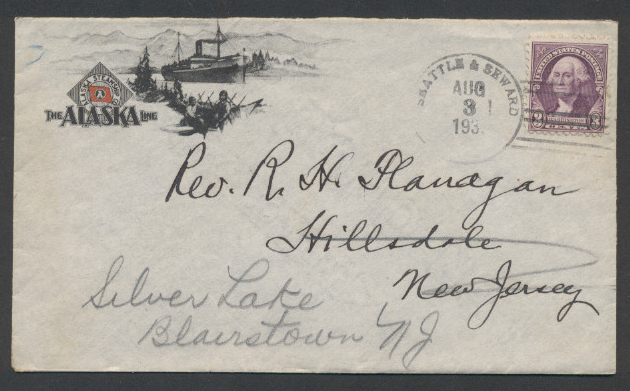 ALASKA STEAMSHIP
A
THE ALASKA LINE
SEATTLE & SEWARD
AUG
31
193
UNITED STATES POSTAGE
3 3
Rev. R. H. Flanagan
Hillsdale
New Jersey
Silver Lake
Blairstown NJ